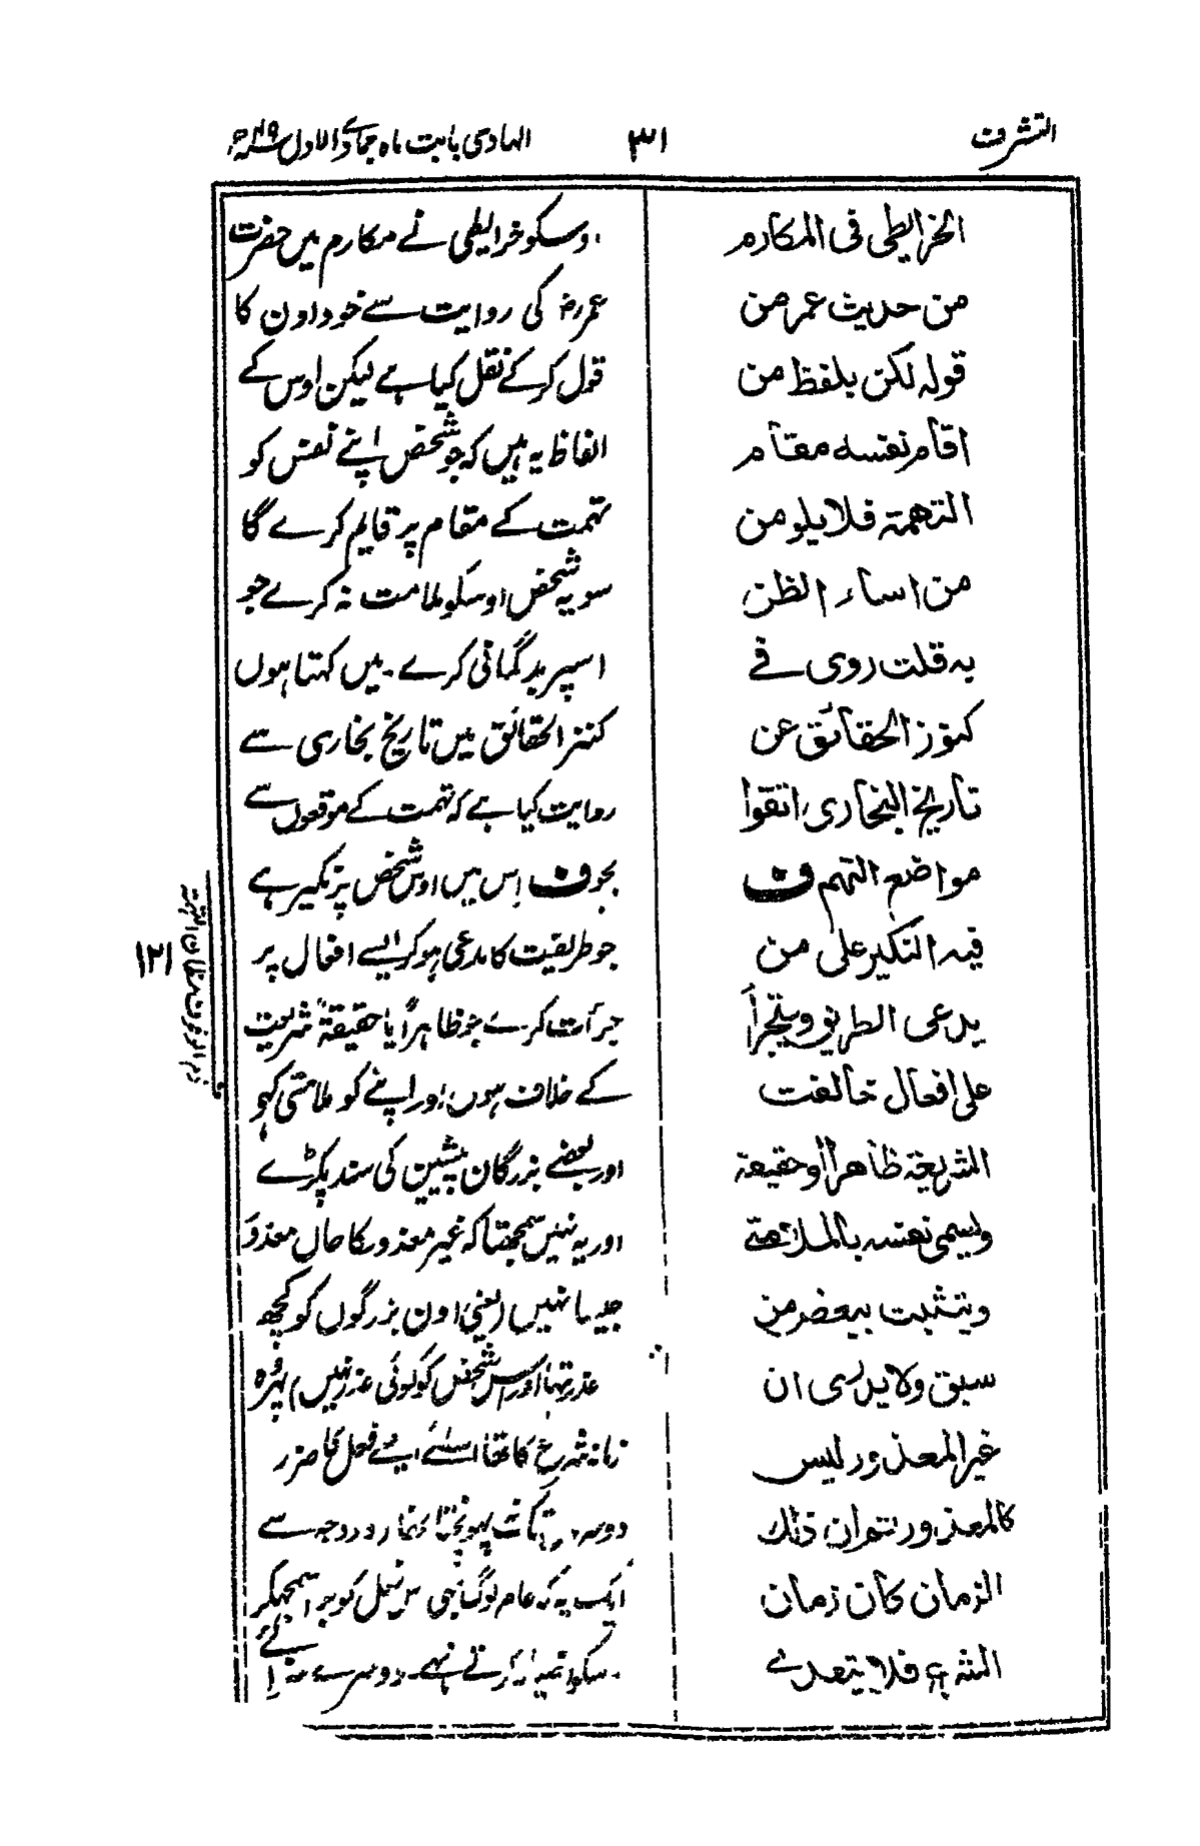 التشرف
۳۱
الہادی بابت ماہ جمادے الاول
الخرایطی فی المکارم
من حدیث عمر من
قولہ لکن بلفظ من
اقام نفسہ مقام
التهمة فلا یلومن
من اساء الظن
بہ قلت روی فے
کنوز الحقائق عن
تاریخ البخاری اتقوا
مواضع التهم ف
فیہ النکیر علی من
یدعی الطریق ویتجرأ
علی افعال خالفت
الشریعة ظاهرا أو حقیقة
ویسمی نفسہ بالملامتی
ویتشبث ببعض من
سبق ولا یدری ان
غیر المعذور لیس
کالمعذور ثم ان ذلك
الزمان کان زمان
الشرع فلا یتعدے
اوسکو خرایطی نے مکارم میں حضرت
عمررض کی روایت سے خود اون کا
قول کرکے نقل کیا ہے لیکن اوس کے
الفاظ یہ ہیں کہ جو شخص اپنے نفس کو
تہمت کے مقام پر قایم کرے گا
سو یہ شخص اوسکو ملامت نہ کرے جو
اسپر بدگمانی کرے۔ میں کہتا ہوں
کنز الحقائق میں تاریخ بخاری سے
روایت کیا ہے کہ تہمت کے موقعوں سے
بچو ف اس میں اوس شخص پر نکیر ہے
جو طریقت کا مدعی ہو کر ایسے افعال پر
جرأت کرے جو ظاہراً یا حقیقةً شریعت
کے خلاف ہوں اور اپنے کو ملامتی کہو
اور بعضے بزرگان پیشین کی سند پکڑے
اور یہ نہیں سمجھتا کہ غیر معذور کا حال معذور
جیسا نہیں (یعنی اون بزرگوں کو کچھ
عذر تہا اور اس شخص کو کوئی عذر نہیں) پہر وہ
زمانہ شرع کا تھا اسلئے ایسے فعل کا ضرر
پہونچتا نہ تھا دو وجہ سے
ایک یہ کہ عام لوگ اس فعل کو برا سمجہکر
دوسرے
۱۲۱